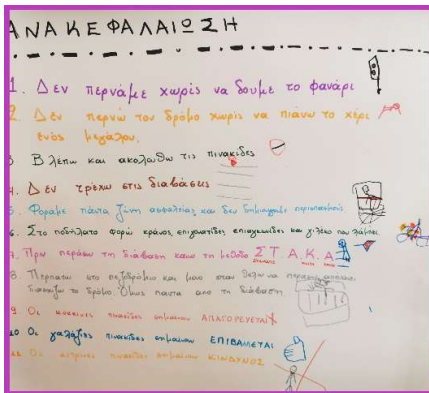 ΑΝΑΚΕΦΑΛΑΙΩΣΗ
1. Δεν περνάμε χωρίς να δουμε το φανάρι
2. Δεν περνώ τον δρόμο χωρίς να πιάνω το χέρι
ενός μεγάλου.
3 Βλέπω και ακολουθω τις πινακίδες
4. Δεν τρέχω στις διαβάσεις
5. Φοραμε πάντα ζώνη ασφαλείας και δεν
6. Στο ποδήλατο φορώ κράνος, επιγονατίδες επιαγκωνίδες και γιλέκο που λάμπει
7. Πριν περάσω τη διάβαση κανω τη μέθοδο Σ Τ Α Κ Α
8. Περπατω στο πεζοδρόμιο και μονο οταν θελω να περασω απεναντι
το δρόμο. Ομως παντα απο τη διάβαση
9 Οι κοκκινες πινακίδες σημαίνουν ΑΠΑΓΟΡΕΥΕΤΑΙ
10 Οι γαλάζιες πινακίδες σημαίνουν ΕΠΙΒΑΛΛΕΤΑΙ
Οι κιτρινες πινακίδες σημαίνουν ΚΙΝΔΥΝΟΣ